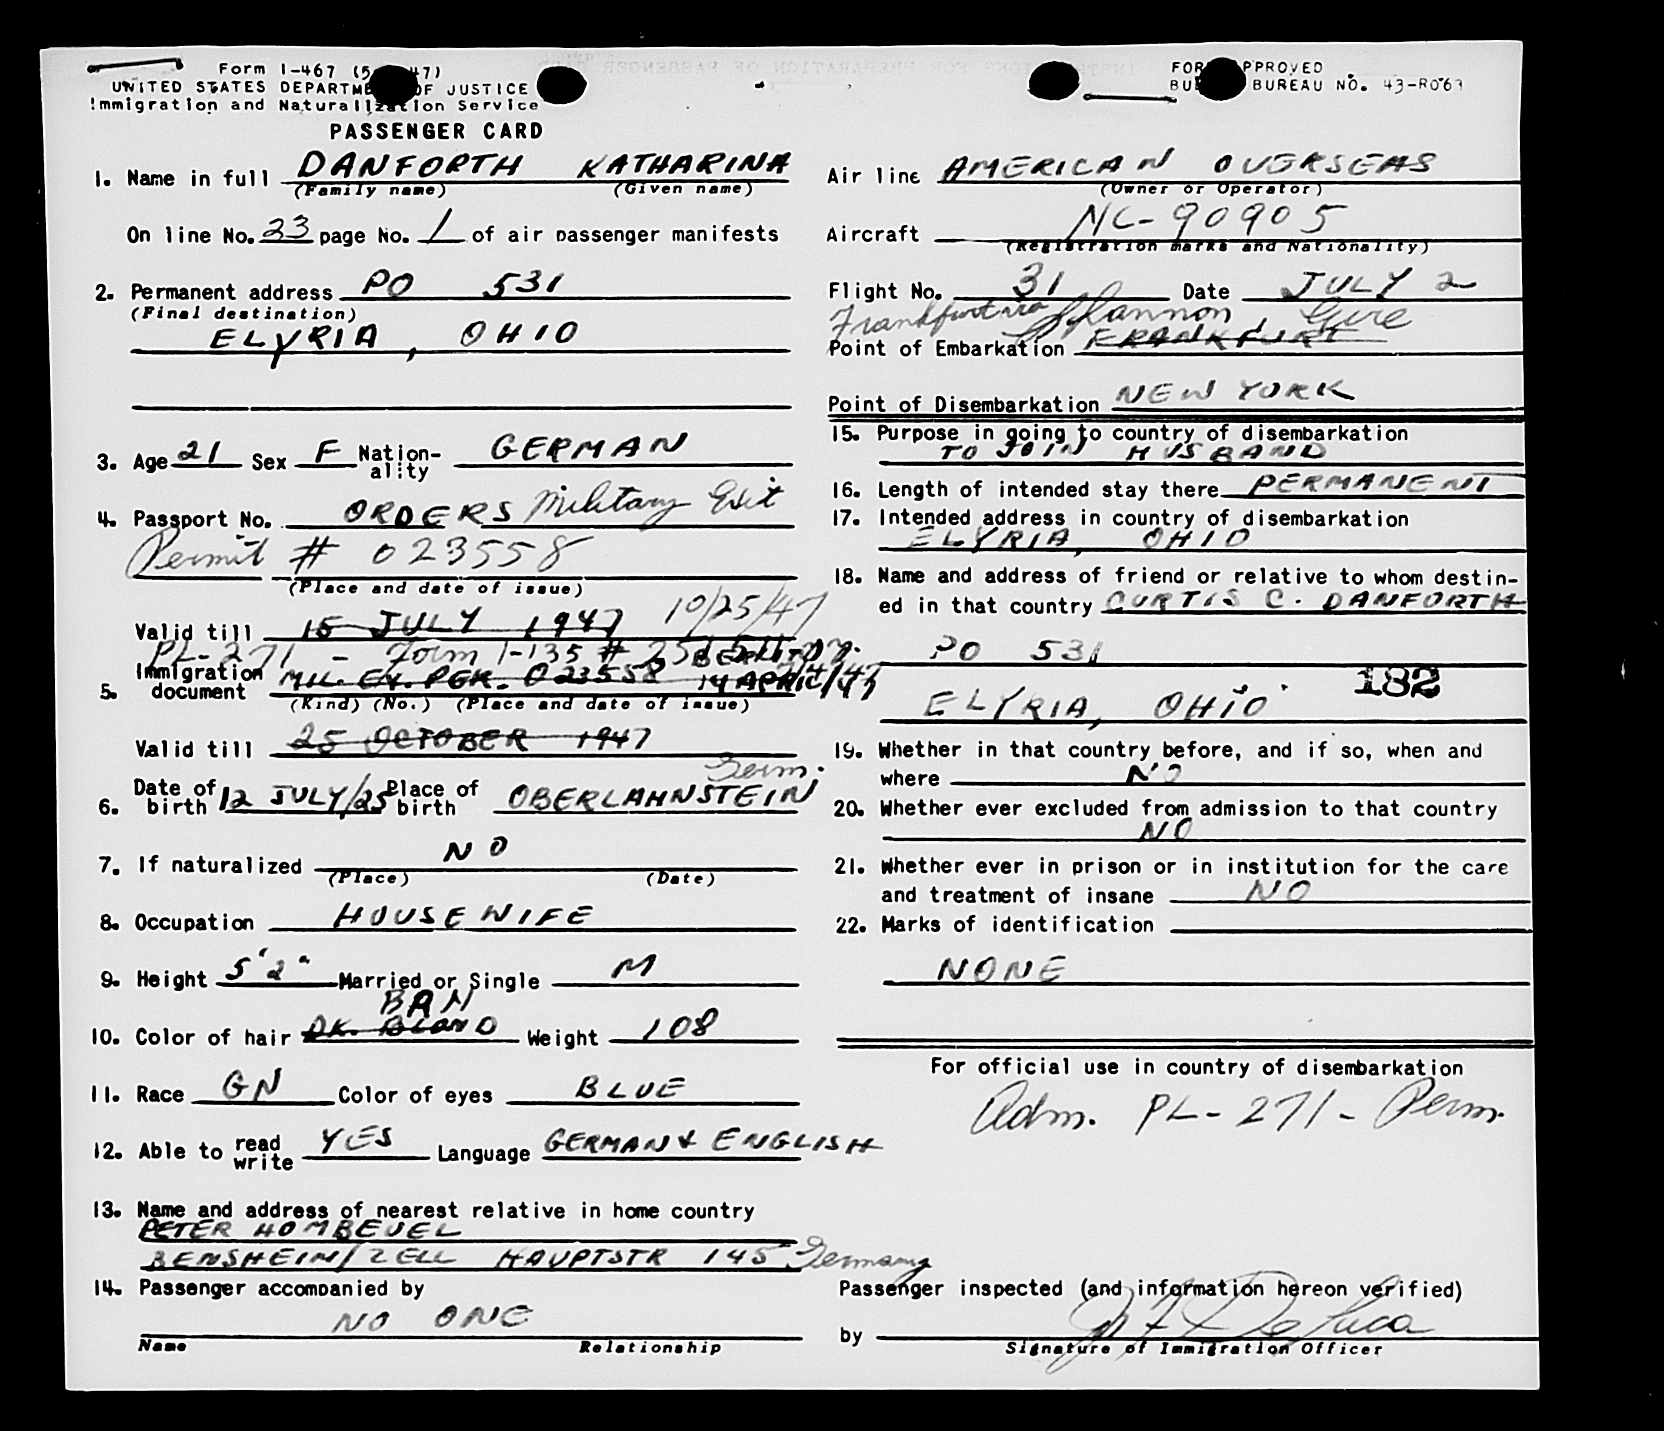 Form I-467 (5 47)
UNITED STATES DEPARTMENT OF JUSTICE
Immigration and Naturalization Service
FOR APPROVED
BUREAU NO. 43-R063
PASSENGER CARD
1. Name in full DANFORTH KATHARINA
(Family name) (Given name)
On line No. 23 page No. 1 of air passenger manifests
2. Permanent address PO 531
(Final destination)
ELYRIA, OHIO
3. Age 21 Sex F Nationality GERMAN
4. Passport No. ORDERS Military Exit
Permit # 023558
(Place and date of issue)
10/25/47
Valid till 15 JULY 1947
PL-271 - Form I-135 #
5. Immigration document MIL. EX. PER. 023558 14 APRIL
(Kind) (No.) (Place and date of issue)
Valid till 25 OCTOBER 1947
Germ.
6. Date of birth 12 JULY/25 Place of birth OBERLAHNSTEIN
7. If naturalized NO
(Place) (Date)
8. Occupation HOUSEWIFE
9. Height 5'2" Married or Single M
BRN
10. Color of hair DK. BLOND Weight 108
11. Race GN Color of eyes BLUE
12. Able to read write YES Language GERMAN & ENGLISH
13. Name and address of nearest relative in home country
PETER HOMBEUEL
BENSHEIM/ZELL HAUPTSTR 145 Germany
14. Passenger accompanied by
NO ONE
Name Relationship
Air line AMERICAN OVERSEAS
(Owner or Operator)
Aircraft NC-90905
(Registration marks and Nationality)
Flight No. 31 Date JULY 2
Frankfurt via Shannon, Eire
Point of Embarkation FRANKFURT
Point of Disembarkation NEW YORK
15. Purpose in going to country of disembarkation
TO JOIN HUSBAND
16. Length of intended stay there PERMANENT
17. Intended address in country of disembarkation
ELYRIA, OHIO
18. Name and address of friend or relative to whom destin-
ed in that country CURTIS C. DANFORTH
PO 531
182
ELYRIA, OHIO
19. Whether in that country before, and if so, when and
where NO
20. Whether ever excluded from admission to that country
NO
21. Whether ever in prison or in institution for the care
and treatment of insane NO
22. Marks of identification
NONE
For official use in country of disembarkation
Adm. PL-271-Perm.
Passenger inspected (and information hereon verified)
by
Signature of Immigration Officer